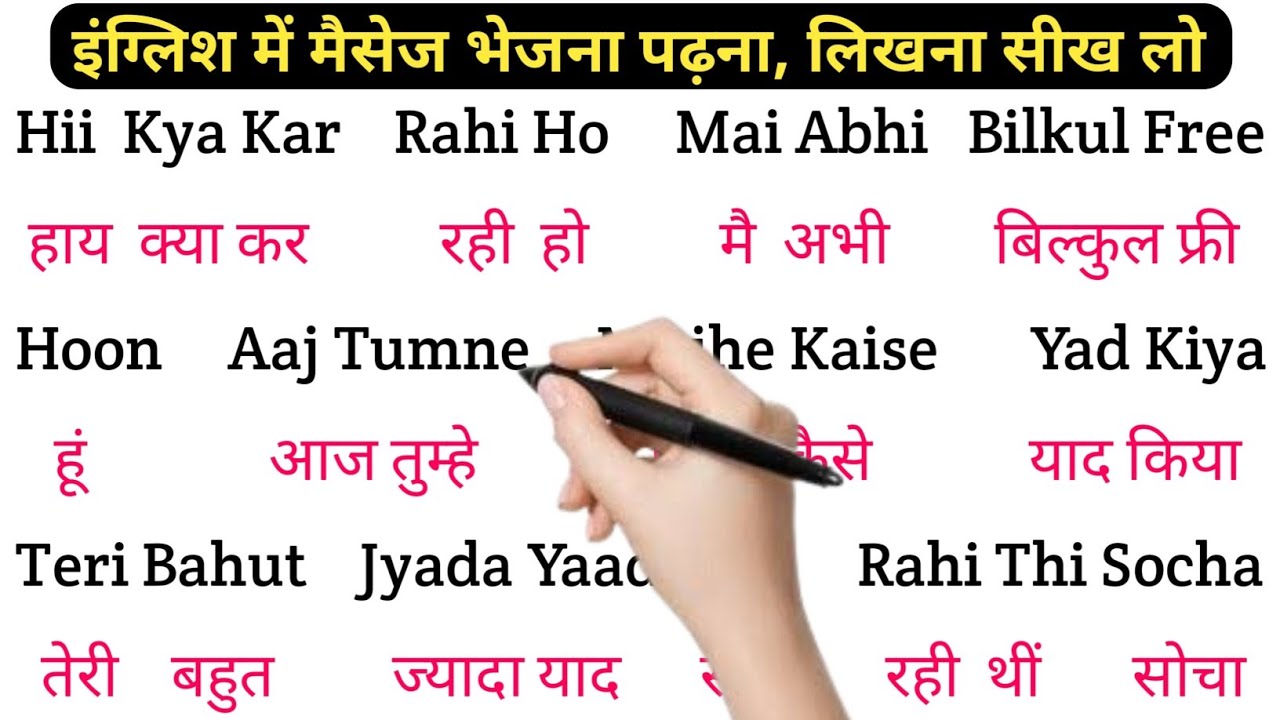 इंग्लिश में मैसेज भेजना पढ़ना, लिखना सीख लो
Hii Kya Kar Rahi Ho Mai Abhi Bilkul Free
हाय क्या कर रही हो मै अभी बिल्कुल फ्री
Hoon Aaj Tumne Kaise Yad Kiya
हूं आज तुम्हे कैसे याद किया
Teri Bahut Jyada Yaad Rahi Thi Socha
तेरी बहुत ज्यादा याद रही थीं सोचा